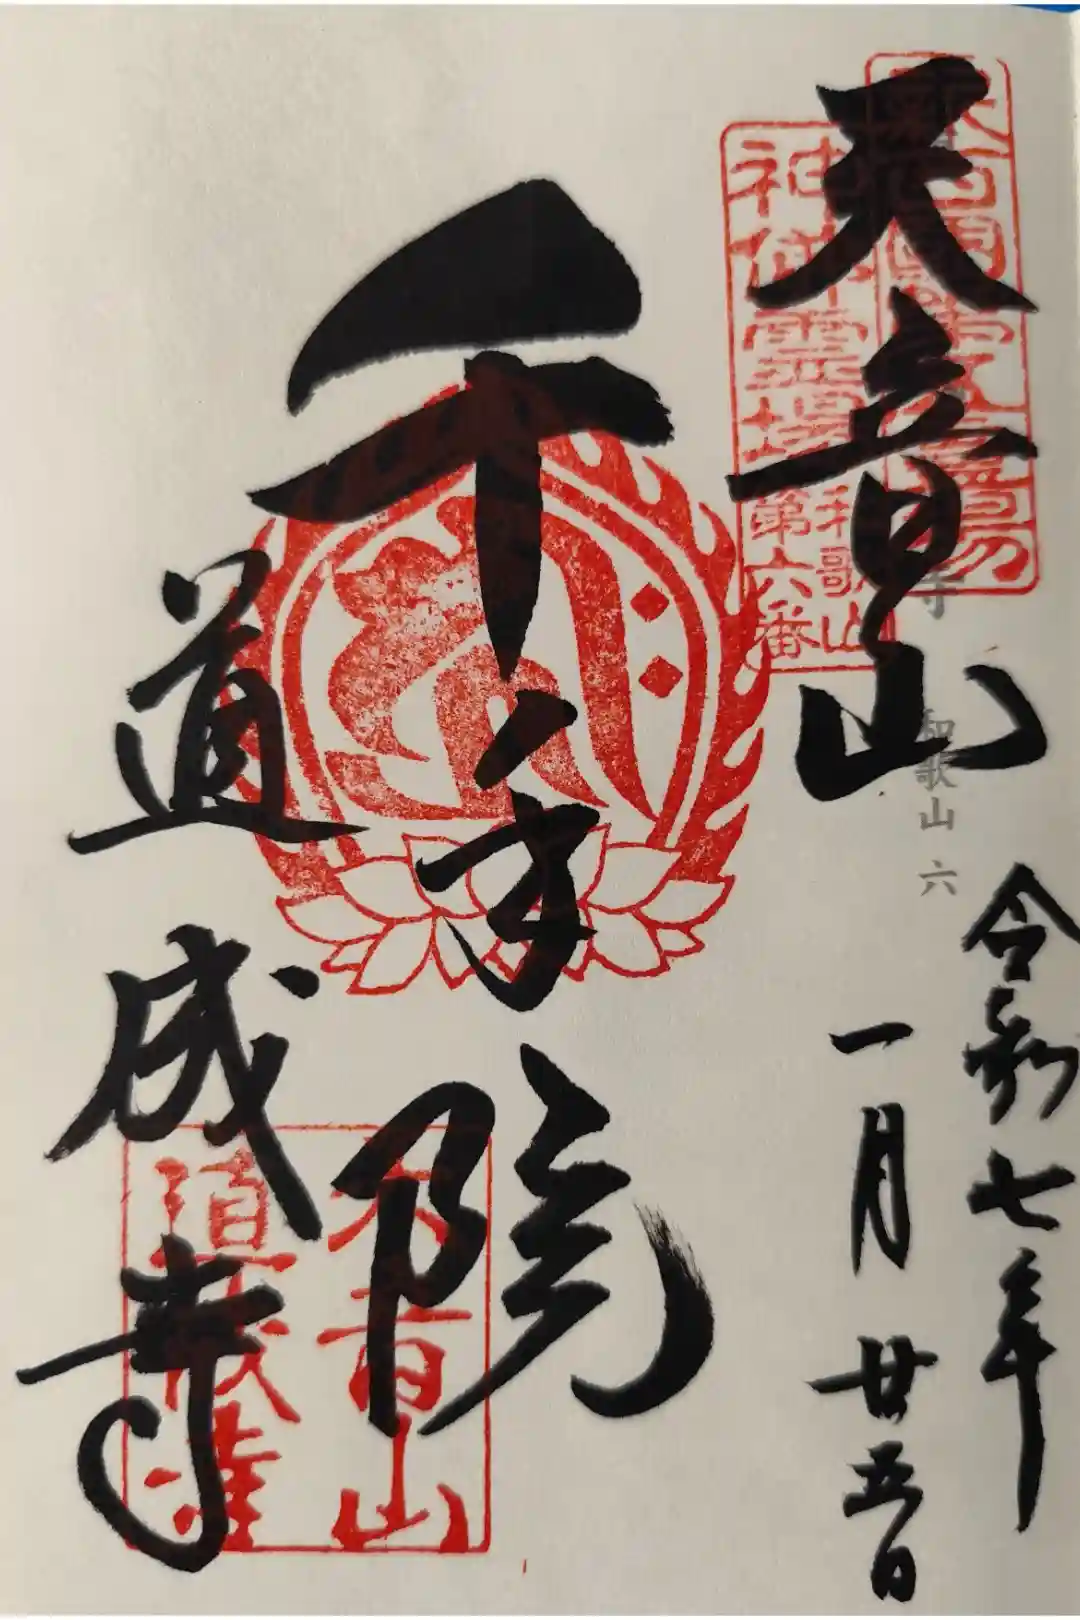 天音山
神佛霊場
和歌山
第六番
寺 和歌山 六
令和七年
一月廿五日
千手院
道成寺
天音山
道成